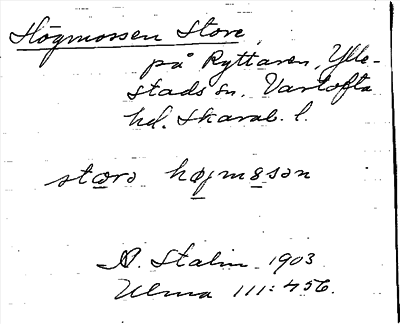 Högmossen Store
på Ryttaren, Ylle-
stads sn. Vartofta
hd. Skarab. l.
storə høgmosən
A. Stalin 1903
Ulma 111:456.